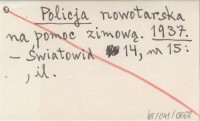 Policja nowotarska
na pomoc zimową. 1937.
– Światowid 14, nr 15:
, il.